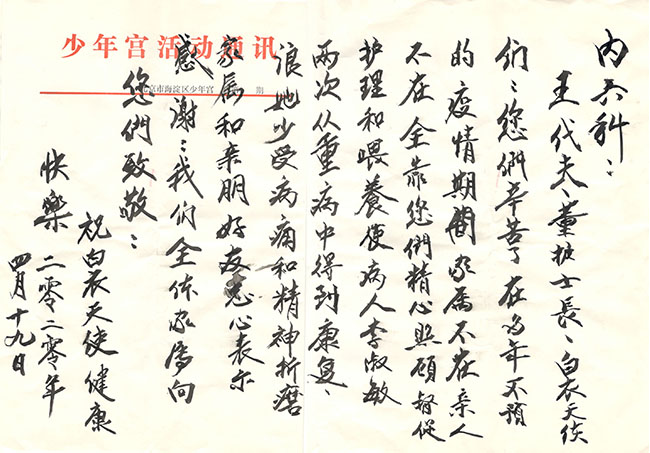 少年宫活动通讯
北京市海淀区少年宫 期
内六科：
王代夫、董护士長、白衣天使
们：您們辛苦了在年不預
的疫情期間家属不在亲人
不在全靠您們精心照顾督促
护理和喂養使病人李淑敏
两次从重病中得到康复、
浪她少受病痛和精神折磨
家属和亲朋好友忠心表示
感謝：我们全体家属向
您們致敬：
祝白衣天使健康
快樂 二零二零年
四月十九日